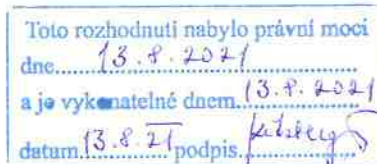 Toto rozhodnutí nabylo právní moci
dne 13.8.2021
a je vykonatelné dnem 13.8.2021
datum 13.8.21 podpis